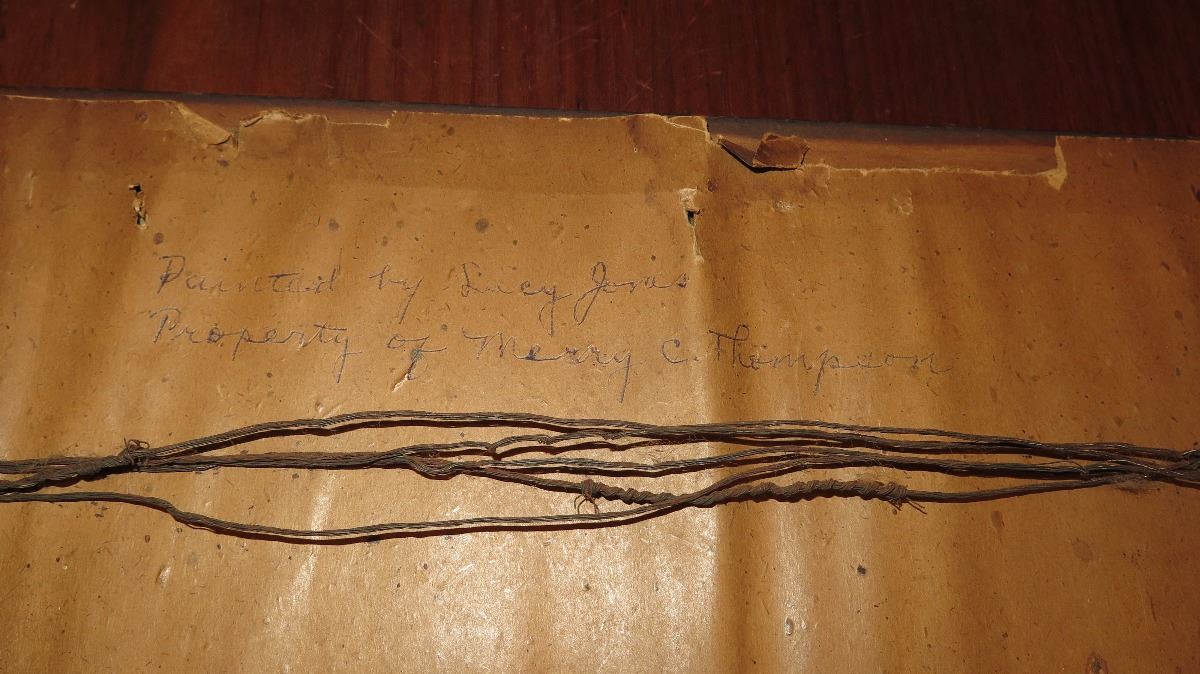 Painted by Lucy Jones
Property of Merry C. Thompson